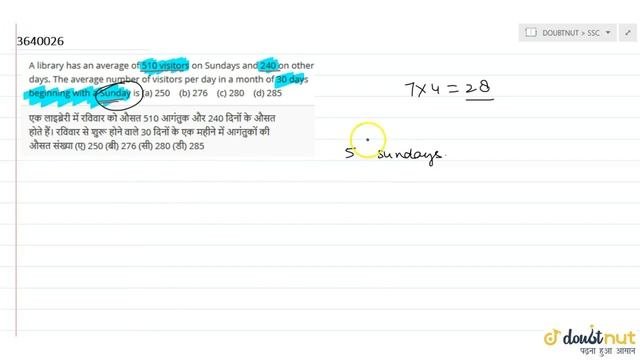 3640026
DOUBTNUT > SSC
A library has an average of 510 visitors on Sundays and 240 on other
days. The average number of visitors per day in a month of 30 days
beginning with a Sunday is (a) 250 (b) 276 (c) 280 (d) 285
7x4 = 28
एक लाइब्रेरी में रविवार को औसत 510 आगंतुक और 240 दिनों के औसत
होते हैं। रविवार से शुरू होने वाले 30 दिनों के एक महीने में आगंतुकों की
औसत संख्या (ए) 250 (बी) 276 (सी) 280 (डी) 285
5 sundays.
doubtnut
पढ़ना हुआ आसान